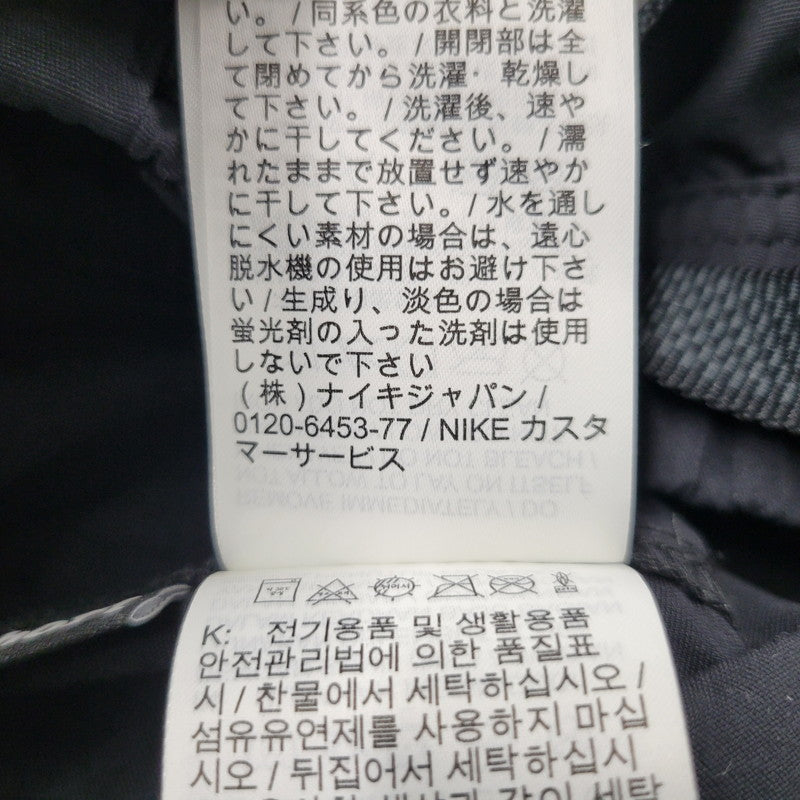 い。/ 同系色の衣料と洗濯
して下さい。/ 開閉部は全
て閉めてから洗濯・乾燥し
て下さい。/ 洗濯後、速や
かに干してください。/ 濡
れたままで放置せず速やか
に干して下さい。/ 水を通し
にくい素材の場合は、遠心
脱水機の使用はお避け下さ
い / 生成り、淡色の場合は
蛍光剤の入った洗剤は使用
しないで下さい
(株) ナイキジャパン /
0120-6453-77 / NIKE カスタ
マーサービス
K: 전기용품 및 생활용품
안전관리법에 의한 품질표
시 / 찬물에서 세탁하십시오 /
섬유유연제를 사용하지 마십
시오 / 뒤집어서 세탁하십시